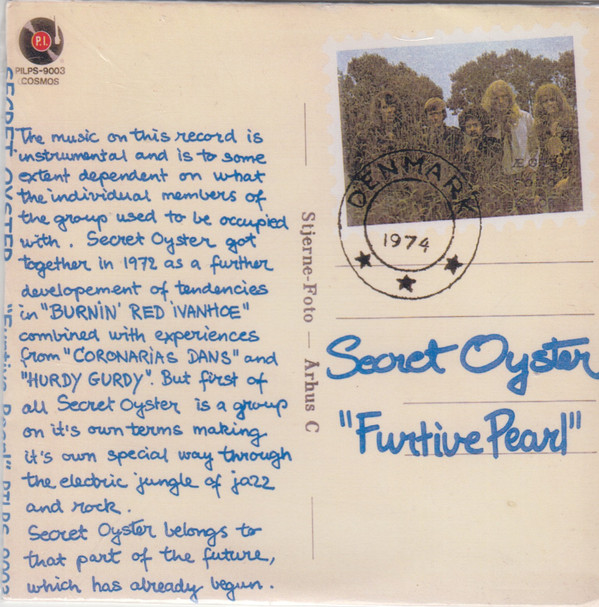 P.I.
PILPS-9003
COSMOS
The music on this record is
instrumental and is to some
extent dependent on what
the individual members of
the group used to be occupied
with. Secret Oyster got
together in 1972 as a further
developement of tendencies
in "BURNiN' RED iVANHOE"
combined with experiences
from "CORONARiAS DANS" and
"HURDY GURDY". But first of
all Secret Oyster is a group
on it's own terms making
it's own special way through
the electric jungle of jazz
and rock.
Secret Oyster belongs to
that part of the future,
which has already begun.
Stjerne-Foto — Århus C
DENMARK
1974
Secret Oyster
"Furtive Pearl"
SECRET OYSTER "Furtive Pearl" PILPS 9003